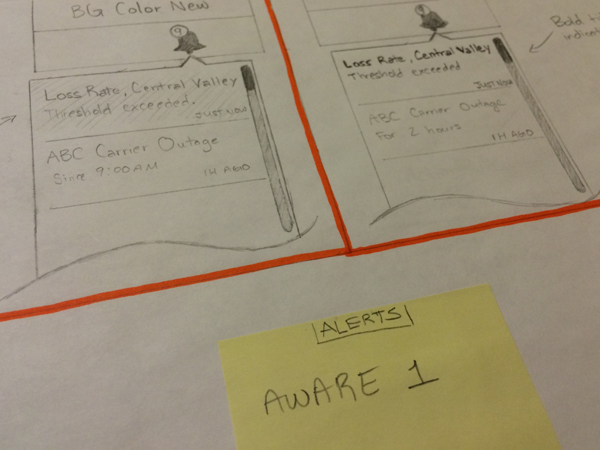 BG Color New
9
Loss Rate, Central Valley
Threshold exceeded.
JUST NOW
ABC Carrier Outage
Since 9:00AM
1H AGO
9
Bold
Loss Rate, Central Valley
Threshold exceeded
JUST NOW
ABC Carrier Outage
For 2 hours
1H AGO
ALERTS
AWARE 1